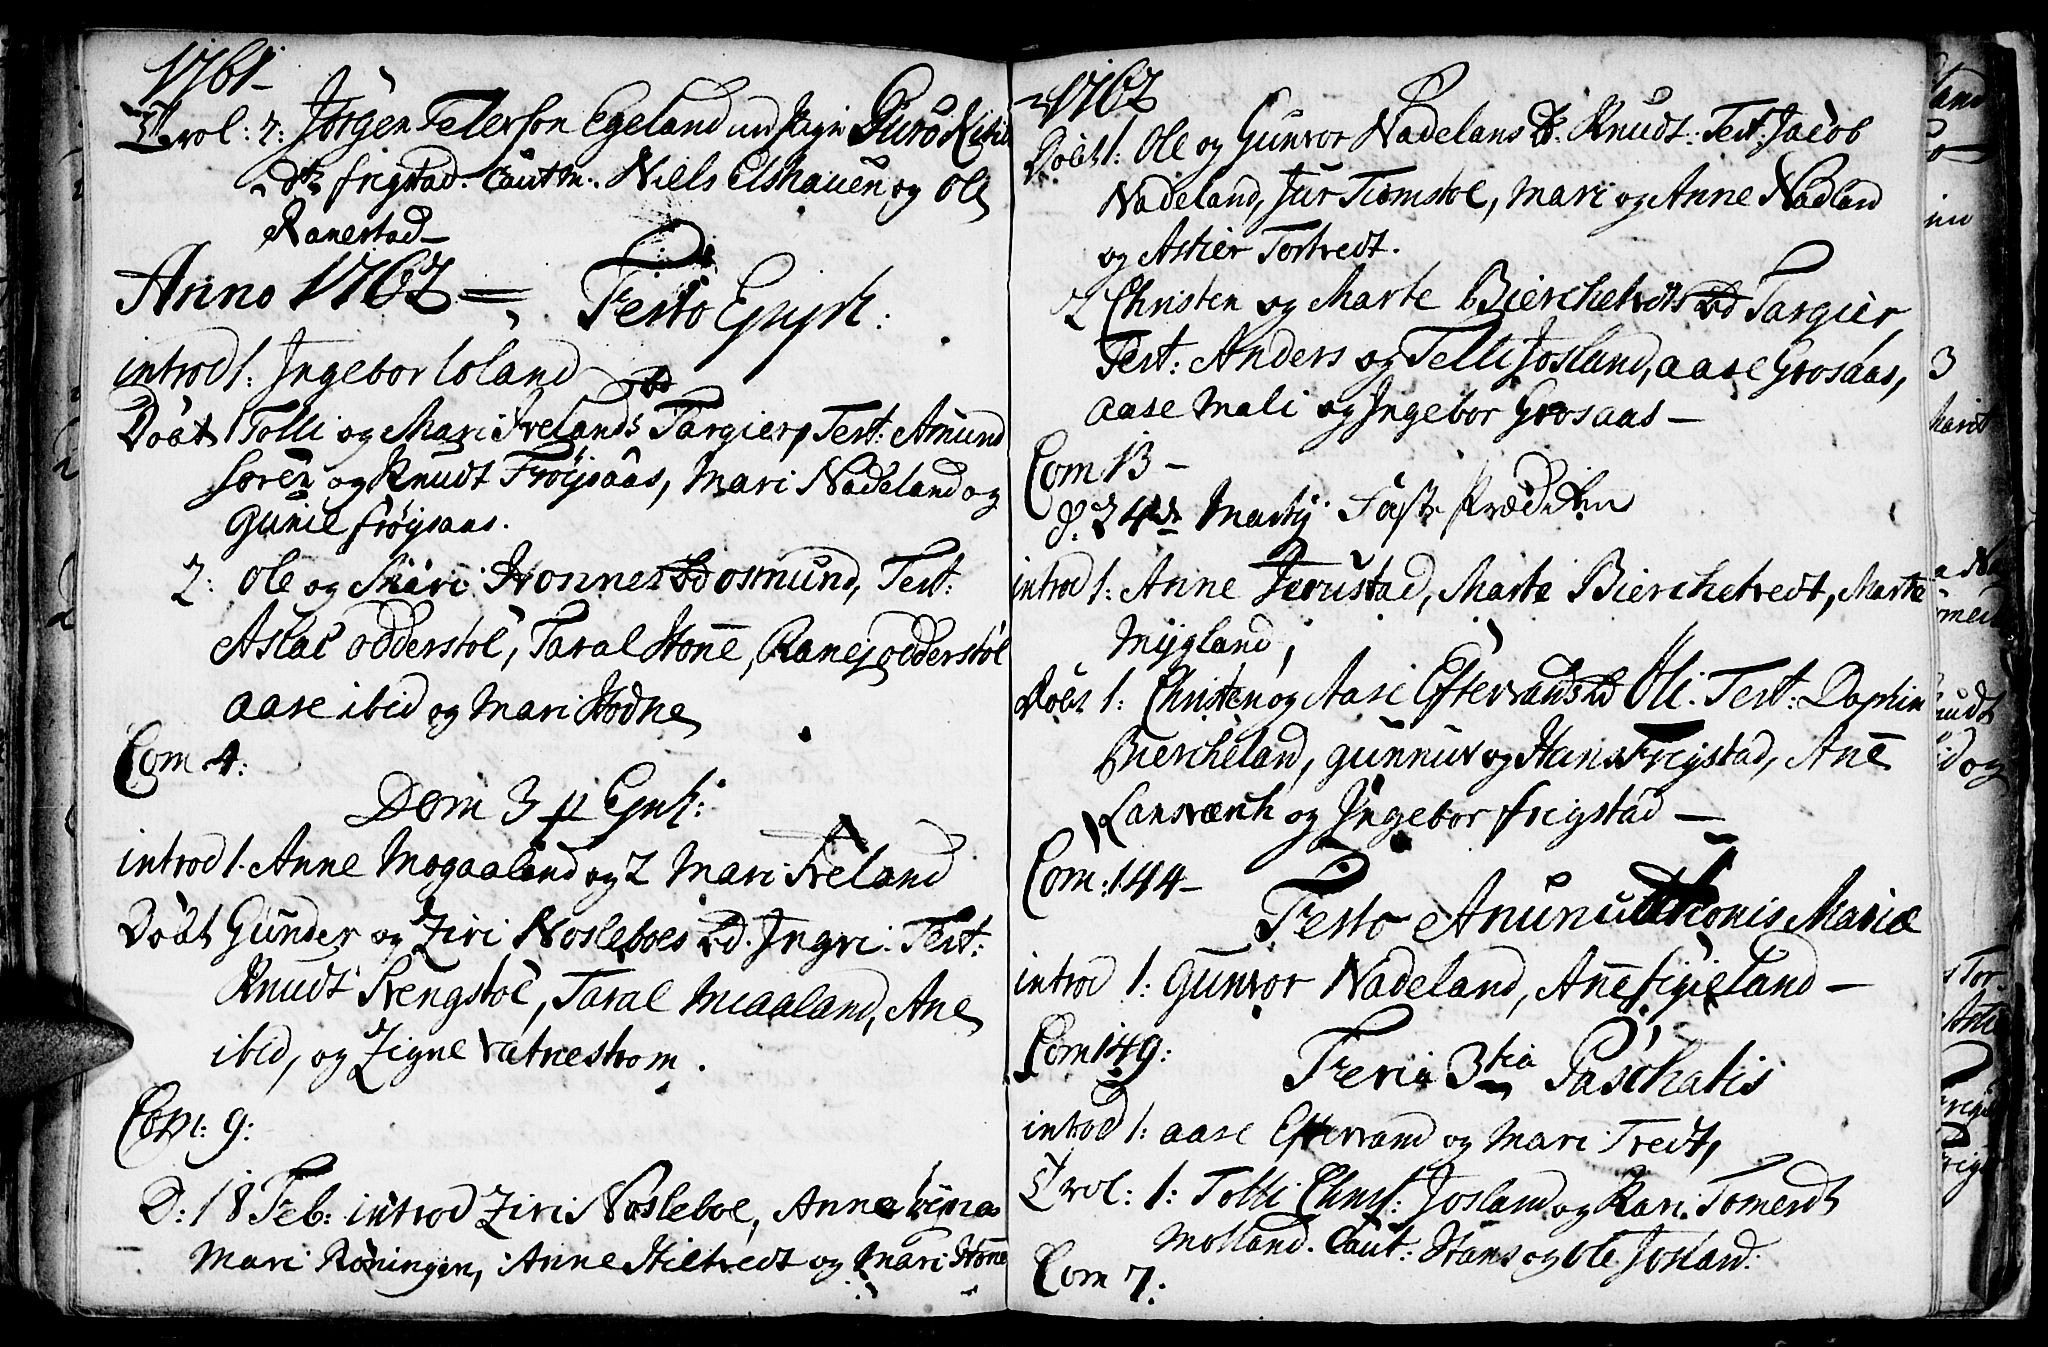 1761-
Trol: 7: Jörgen Peterson Egeland und pige Guro
dtr frigstad. Caut m. Niels Elshauen og Ole
Ranestad-
Anno 1762 =, Festo Epiph:
introd 1: Ingebor loland
Döbt 1 Tolli og Mari Frelands Bd Targier, Test: Amund
Soren og Knudt Fröysaas, Mari Nadeland og
Gunie fröysaas.
2: Ole og Mari Honnes Bd osmund, Test:
Aslac odderstöl, Taral Honne, Ranei odderstöl
aase ibid og Mari Hodne
Com 4:
Dom 3 p Epiph:
introd 1. Anne Mogaaland og 2 Mari Freland
Döbt Gunder og Ziri Nosleboes Bd. Ingri. Test:
Knudt Frengstöl, Taral Miaaland, Ane
ibid, og Zigne Vatnestrom.
Com: 9:
D: 18 Feb: introd Ziri Nosleboe, Anne
Mari Röningen, Anne Hiltvedt og Mari Honne
1762
Döbt 1: Ole og Gunvor Nadelans B. Knudt: Test: Jacob
Nadeland, Jur Tiomstöl, Mari og Anne Nadland
og Astier Tortvedt.
2 Christen og Marte Bierchetvedts Bd Targier,
Test: Anders og Telli Josland, aase Grosaas,
aase Mali og Ingebor Grosaas-
Com 13-
d. 24de Martij Faste Prædiken
introd 1: Anne Jorustad, Marte Bierchetvedt, Marte
Mygland;
Döbt 1: Christen og Aase Eftevands Bd Oli. Test: Daphin
Biercheland, gunnur og Hans Frigstad, Ane
Lansværk og Ingebor frigstad-
Com: 144-
Festo Anunutionis Mariæ
introd 1: Gunvor Nadeland, Ane figieland-
Com 149:
Feria 3tia Paschatis
introd 1: aase Eftevand og Mari Tredt,
Trol: 1: Tolli Christ: Josland og Kari Tomesdt
Molland. Caut: Hans og Ole Josland:
Com 7: